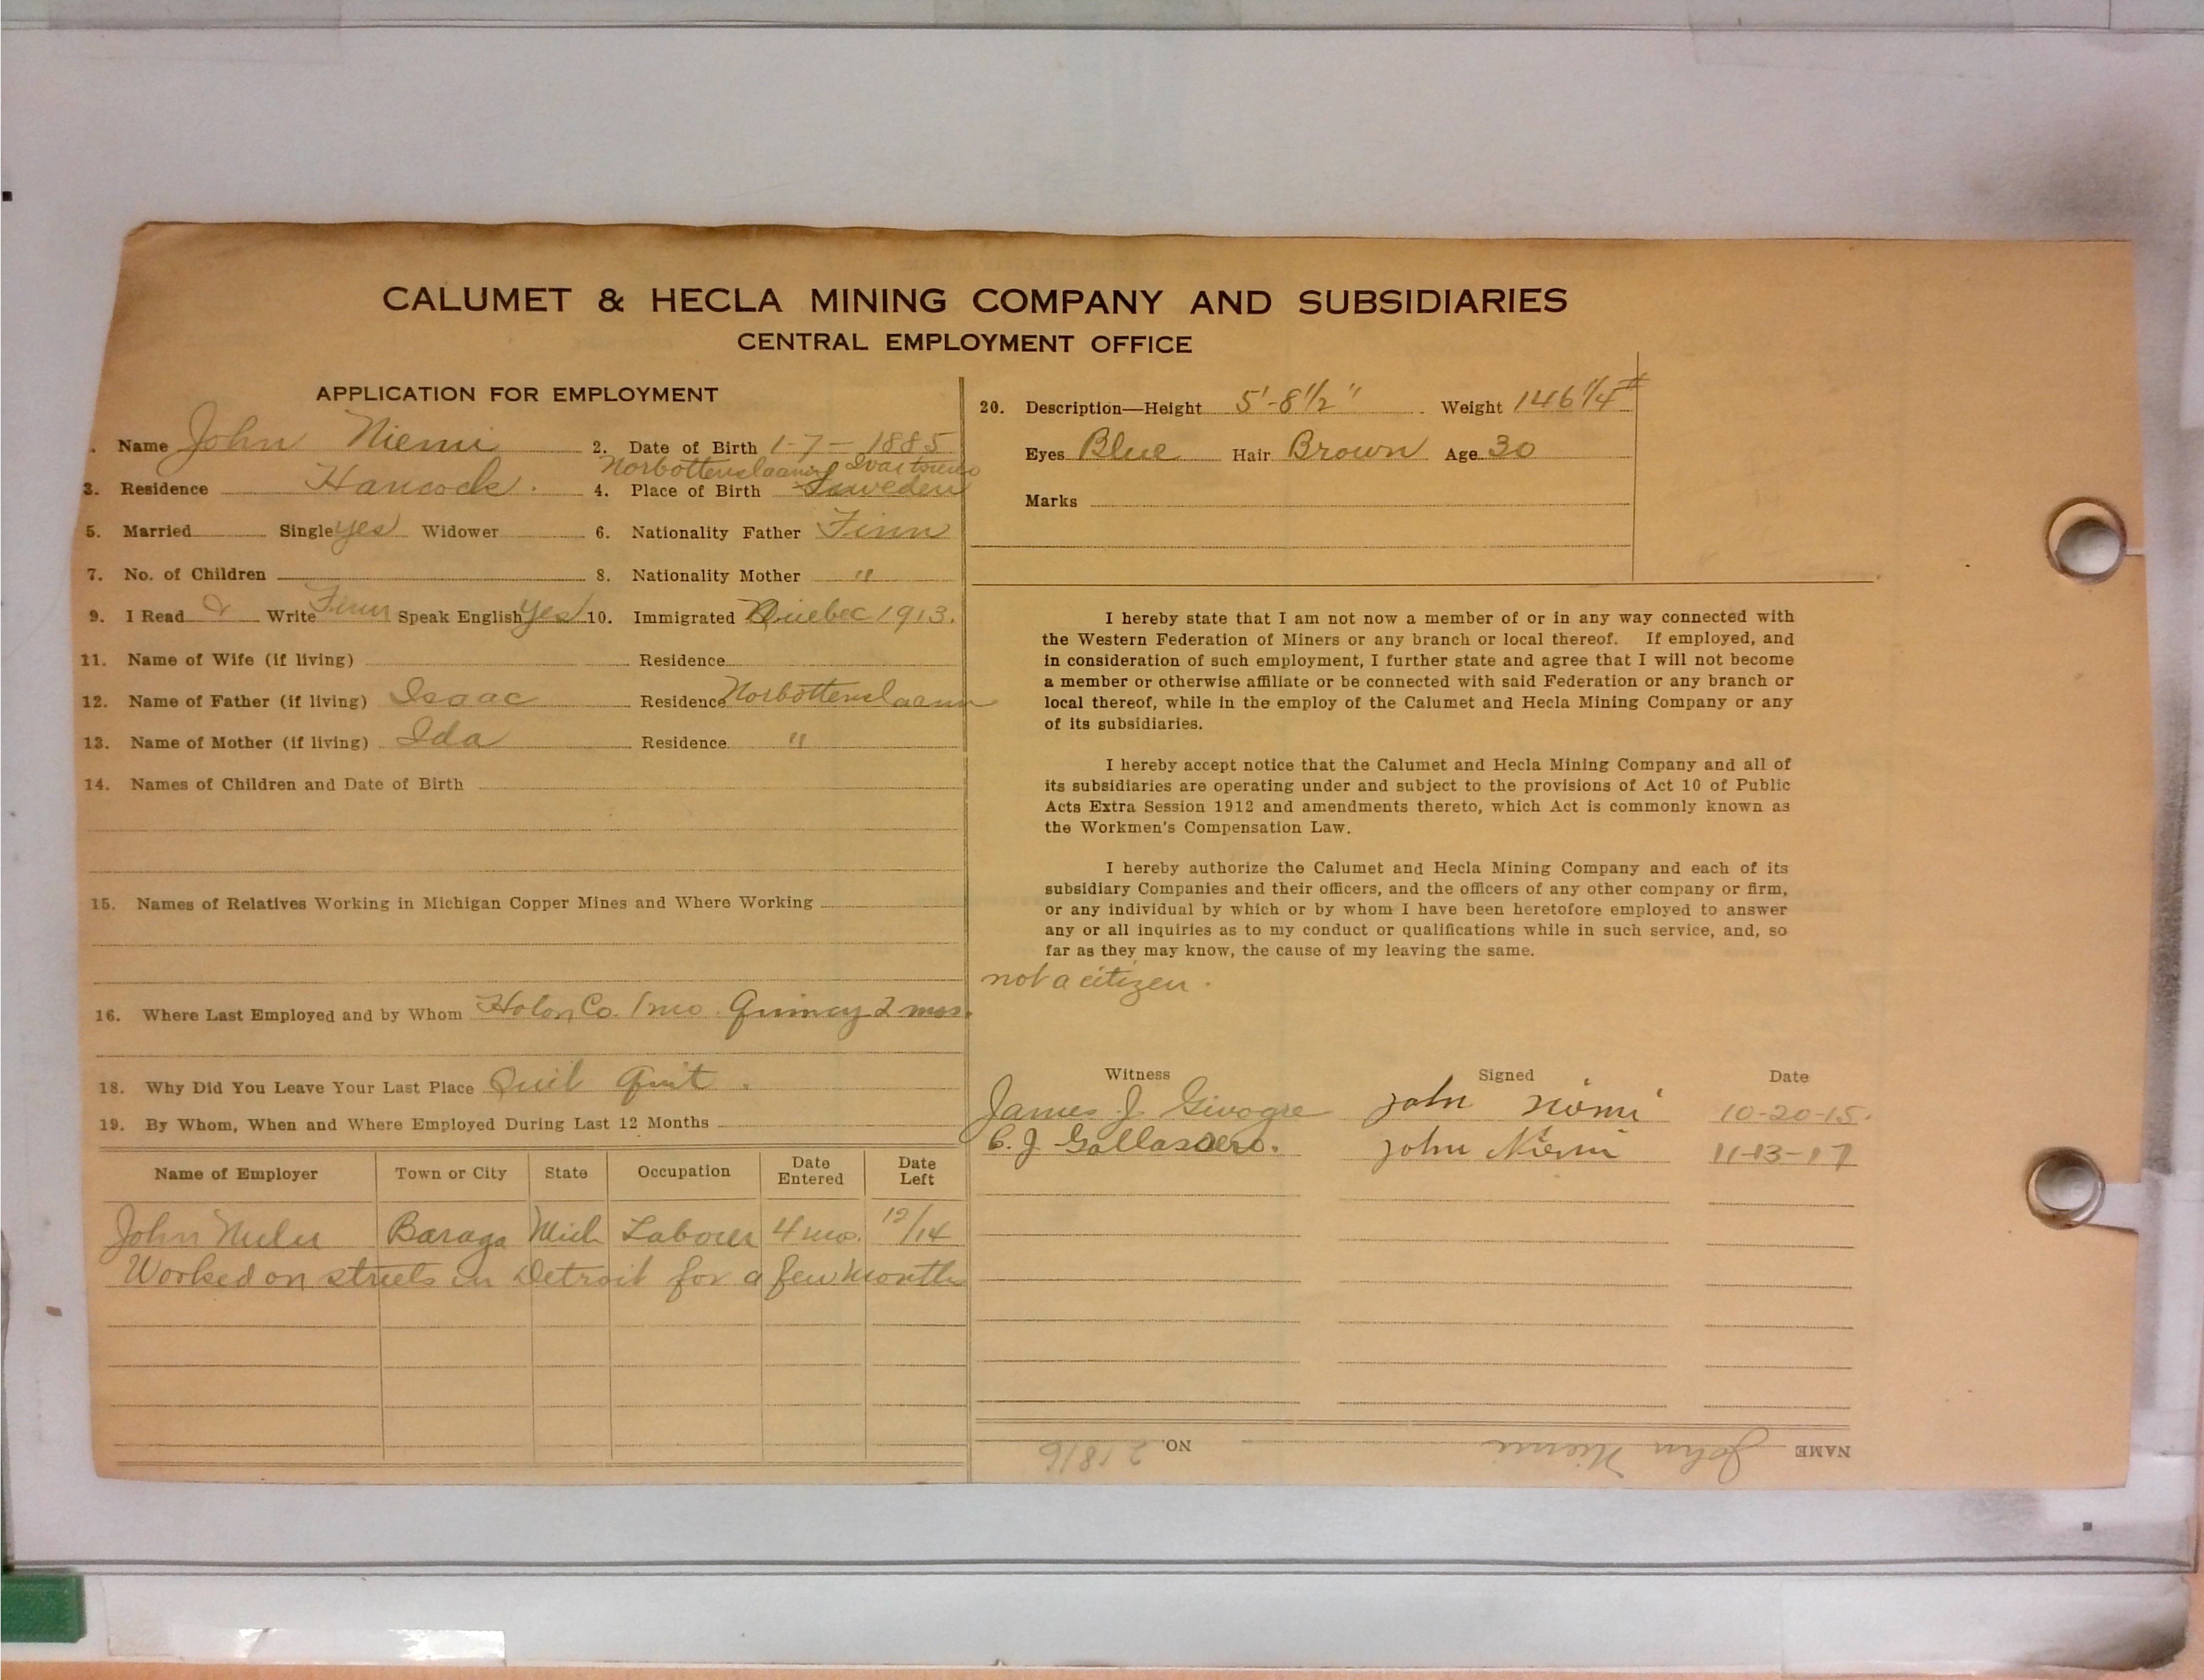 CALUMET & HECLA MINING COMPANY AND SUBSIDIARIES
CENTRAL EMPLOYMENT OFFICE
APPLICATION FOR EMPLOYMENT
. Name John Niemi 2. Date of Birth 1-7-1885
Norbottenslaan
3. Residence Hancock. 4. Place of Birth Sweden
5. Married Single yes Widower 6. Nationality Father Finn
7. No. of Children 8. Nationality Mother "
9. I Read & Write Finn Speak English yes 10. Immigrated Quebec 1913.
11. Name of Wife (if living) Residence
12. Name of Father (if living) Isaac Residence Norbottenslaan
13. Name of Mother (if living) Ida Residence "
14. Names of Children and Date of Birth
15. Names of Relatives Working in Michigan Copper Mines and Where Working
16. Where Last Employed and by Whom Co. 1 mo. Quincy 2 mos.
18. Why Did You Leave Your Last Place Quit Quit.
19. By Whom, When and Where Employed During Last 12 Months
Name of Employer Town or City State Occupation Date Entered Date Left
John Baraga Mich Laborer 4 mo. 12/14
Worked on streets in Detroit for a few months
20. Description—Height 5'-8 1/2" Weight 146 1/4 #
Eyes Blue Hair Brown Age 30
Marks
I hereby state that I am not now a member of or in any way connected with
the Western Federation of Miners or any branch or local thereof. If employed, and
in consideration of such employment, I further state and agree that I will not become
a member or otherwise affiliate or be connected with said Federation or any branch or
local thereof, while in the employ of the Calumet and Hecla Mining Company or any
of its subsidiaries.
I hereby accept notice that the Calumet and Hecla Mining Company and all of
its subsidiaries are operating under and subject to the provisions of Act 10 of Public
Acts Extra Session 1912 and amendments thereto, which Act is commonly known as
the Workmen's Compensation Law.
I hereby authorize the Calumet and Hecla Mining Company and each of its
subsidiary Companies and their officers, and the officers of any other company or firm,
or any individual by which or by whom I have been heretofore employed to answer
any or all inquiries as to my conduct or qualifications while in such service, and, so
far as they may know, the cause of my leaving the same.
not a citizen.
Witness Signed Date
James J. John Niemi 10-20-15.
C. J. John Niemi 11-13-17
NAME John Niemi NO. 21816